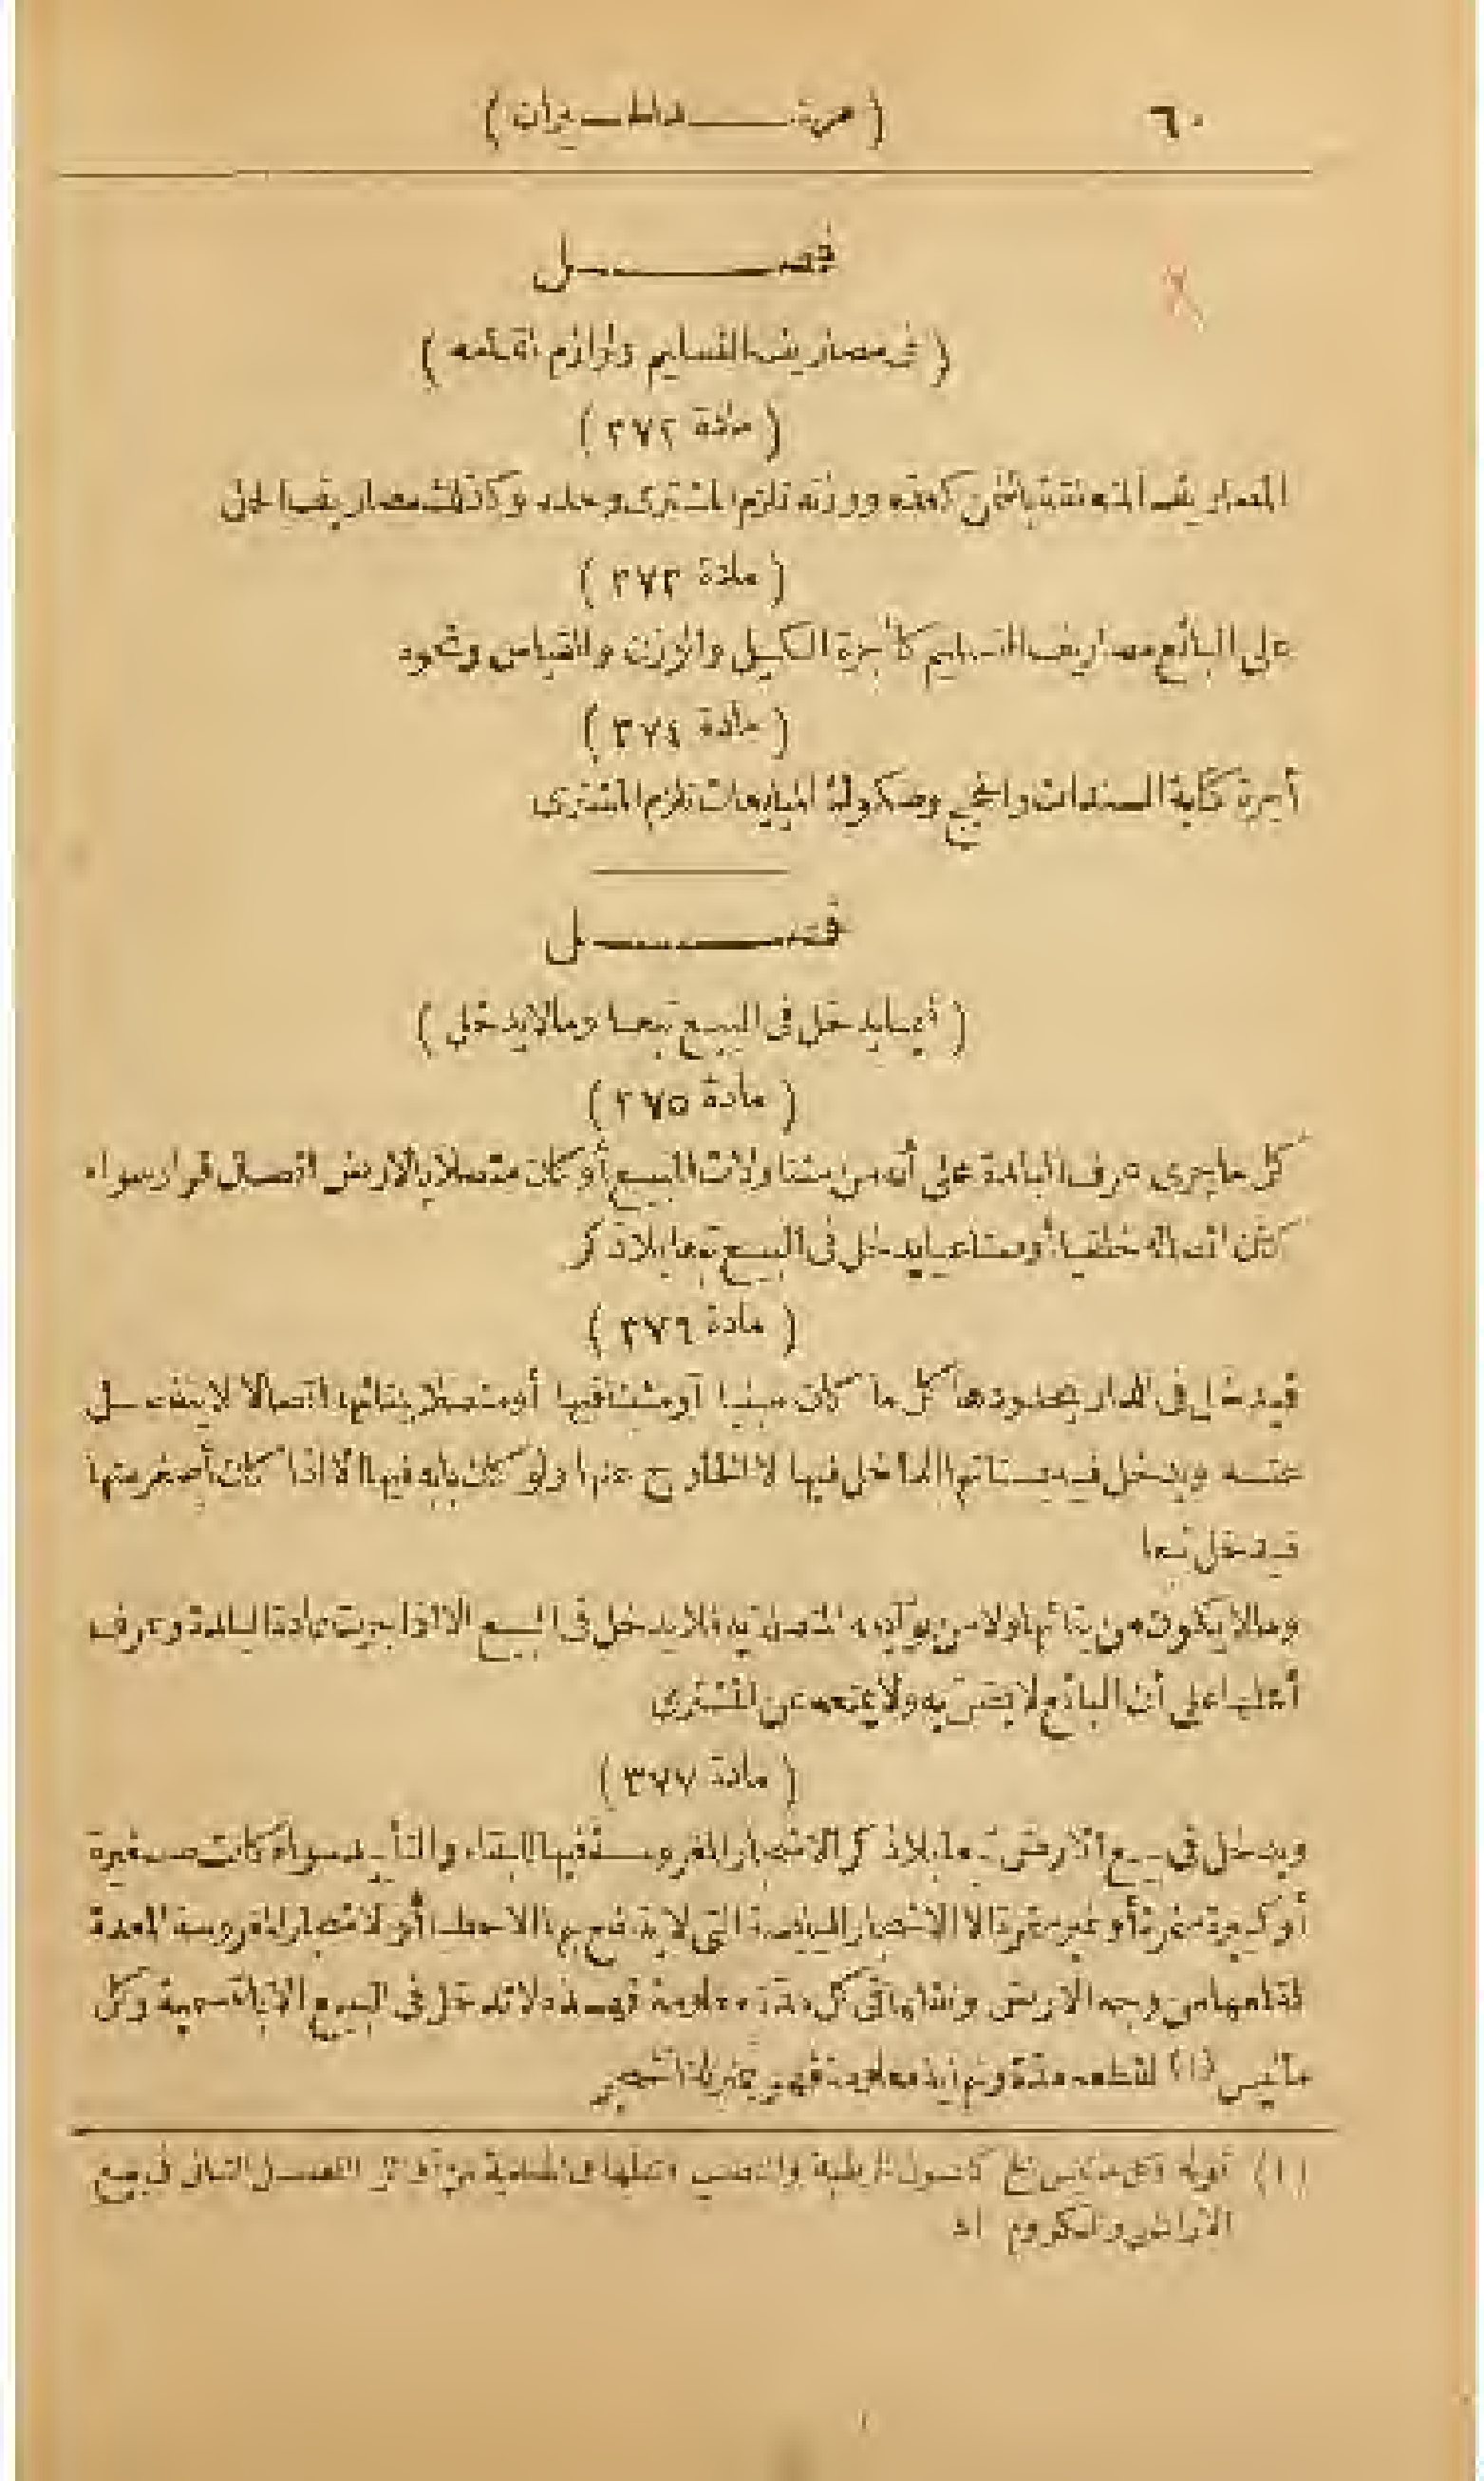 ٦٠ (مرشد الحيران)
فصل
(في مصاريف التسليم ولوازم اتمامه)
(مادة ٣٧٢)
المصاريف المتعلقة بالثمن كعده ووزنه تلزم المشترى وحده وكذلك مصاريف
(مادة ٣٧٣)
على البائع مصاريف التسليم كأجرة الكيل والوزن والقياس ونحوه
(مادة ٣٧٤)
أجرة كتابة السندات والحجج وصكوك المبايعات تلزم المشترى
فصل
(فيما يدخل فى البيع تبعا وما لا يدخل)
(مادة ٣٧٥)
كل ما جرى عرف البلدة على أنه من مشتملات المبيع أو كان متصلا بالارض اتصال قرار سواء
كان اتصاله خلقيا أو صناعيا يدخل فى البيع تبعا بلا ذكر
(مادة ٣٧٦)
فيدخل فى الدار بحدودها كل ما كان مبنيا أو مثبتا فيها أو متصلا ببنائها اتصالا لا ينفصل
عنه ويدخل فيه بستانها الداخل فيها لا الخارج عنها ولو كان بابه فيها الا اذا كان أصغر منها
فيدخل تبعا
وما لا يكون من بنائها ولا من توابعه المتصلة به فلا يدخل فى البيع الا اذا جرت عادة البلدة وعرف
أهلها على أن البائع لا يضن به ولا يمنعه عن المشترى
(مادة ٣٧٧)
ويدخل فى بيع الارض تبعا بلا ذكر الاشجار المغروسة فيها للبقاء والتأبيد سواء كانت صغيرة
أو كبيرة مثمرة أو غير مثمرة الا الاشجار اليابسة التى لا ينتفع بها الا حطبا أو الاشجار المغروسة المعدة
لقلعها من وجه الارض ونقلها فى كل مدة معلومة فهذه لا تدخل فى البيع الا بالتسمية وكل
ما ليس (١) لقطعه مدة ونهاية معلومة فهو بمنزلة الشجر
(١) قوله وكل ما ليس الخ كأصول الرطبة من أواخر الفصل الثانى فى بيع
الاراضى والكروم اه